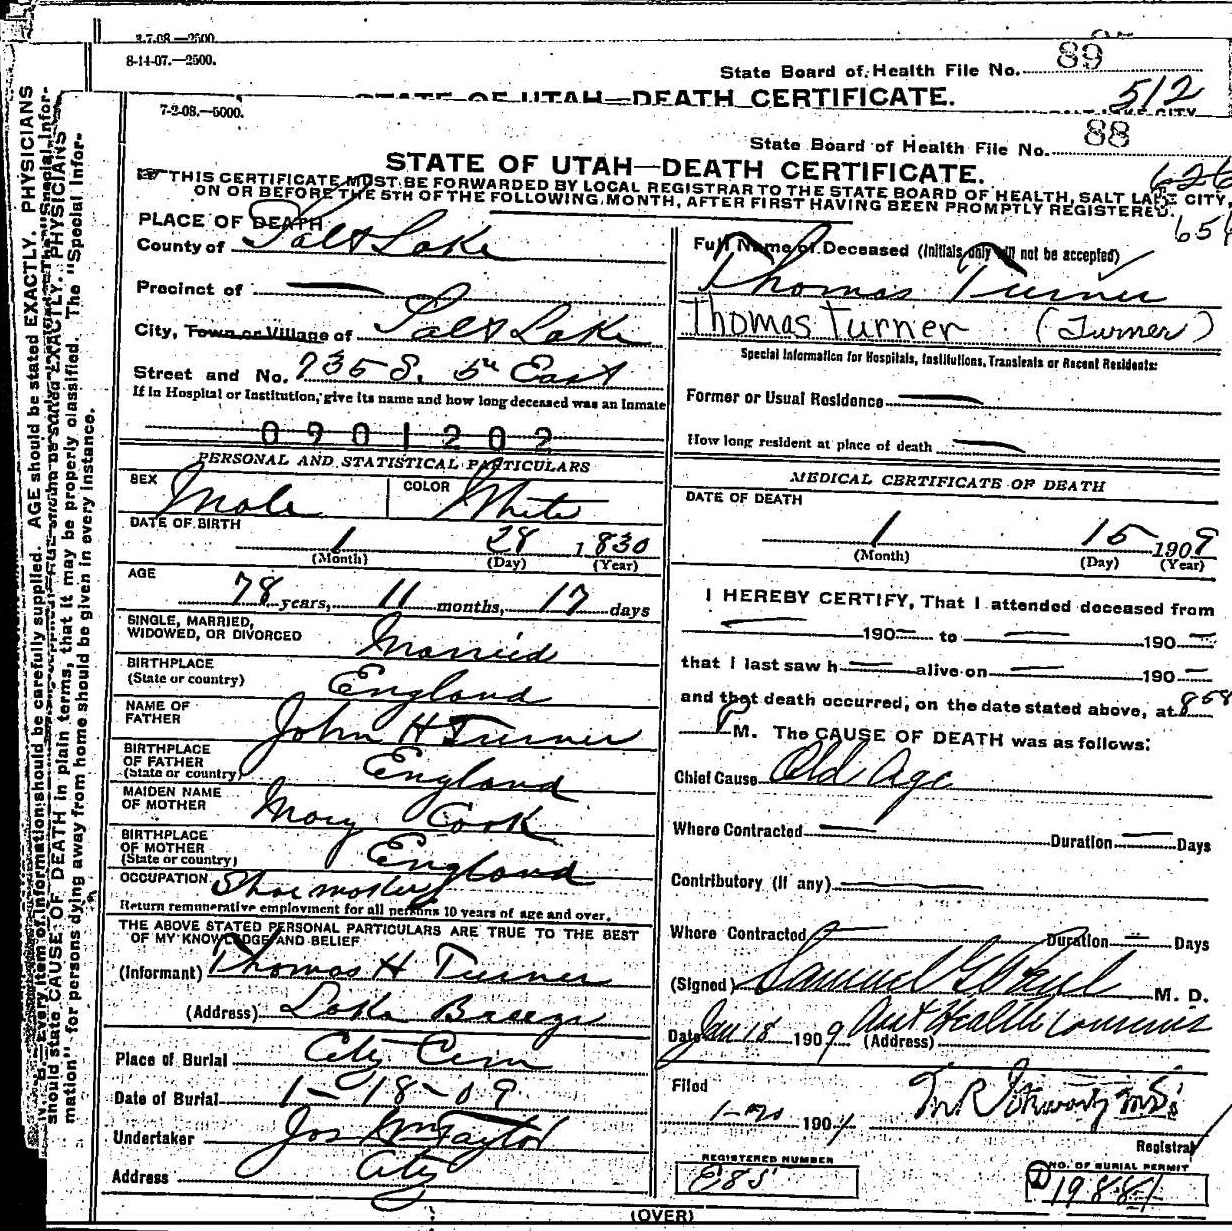 3.7.08.—2500
8-14-07.—2500.
State Board of Health File No. 89
STATE OF UTAH—DEATH CERTIFICATE.
512
7-2-08.—5000.
State Board of Health File No. 88
STATE OF UTAH—DEATH CERTIFICATE.
626
THIS CERTIFICATE MUST BE FORWARDED BY LOCAL REGISTRAR TO THE STATE BOARD OF HEALTH, SALT LAKE CITY,
ON OR BEFORE THE 5TH OF THE FOLLOWING MONTH, AFTER FIRST HAVING BEEN PROMPTLY REGISTERED.
PLACE OF DEATH
County of Salt Lake
Precinct of —
City, Town or Village of Salt Lake
Street and No. 735 S. 5th East
If in Hospital or Institution, give its name and how long deceased was an Inmate
0901202
PERSONAL AND STATISTICAL PARTICULARS
SEX Male COLOR White
DATE OF BIRTH
1 28 1830
(Month) (Day) (Year)
AGE
78 years, 11 months, 17 days
SINGLE, MARRIED,
WIDOWED, OR DIVORCED Married
BIRTHPLACE
(State or country) England
NAME OF
FATHER John H Turner
BIRTHPLACE
OF FATHER
(State or country) England
MAIDEN NAME
OF MOTHER Mary Cook
BIRTHPLACE
OF MOTHER
(State or country) England
OCCUPATION Shoemaker
Return remunerative employment for all persons 10 years of age and over.
THE ABOVE STATED PERSONAL PARTICULARS ARE TRUE TO THE BEST
OF MY KNOWLEDGE AND BELIEF
(Informant) Thomas H Turner
(Address) Lake Breeze
Place of Burial City Cem
Date of Burial 1-18-09
Undertaker Jos Wm Taylor
Address City
Full Name of Deceased (Initials only will not be accepted)
Thomas Turner
Thomas Turner (Turner)
Special Information for Hospitals, Institutions, Transients or Recent Residents:
Former or Usual Residence —
How long resident at place of death —
MEDICAL CERTIFICATE OF DEATH
DATE OF DEATH
1 15 1909
(Month) (Day) (Year)
I HEREBY CERTIFY, That I attended deceased from
— 190— to — 190—
that I last saw h — alive on — 190—
and that death occurred, on the date stated above, at 8 58
P M. The CAUSE OF DEATH was as follows:
Chief Cause Old Age
Where Contracted — Duration — Days
Contributory (if any) —
Where Contracted — Duration — Days
(Signed) Samuel G. M. D.
Date Jan 18 1909 (Address) Asst Health Commis
Filed
190
Registrar
REGISTERED NUMBER
E85
NO. OF BURIAL PERMIT
(OVER)
N. B.—Every item of information should be carefully supplied. AGE should be stated EXACTLY. PHYSICIANS
should state CAUSE OF DEATH in plain terms, that it may be properly classified. The "Special Infor-
mation" for persons dying away from home should be given in every instance.